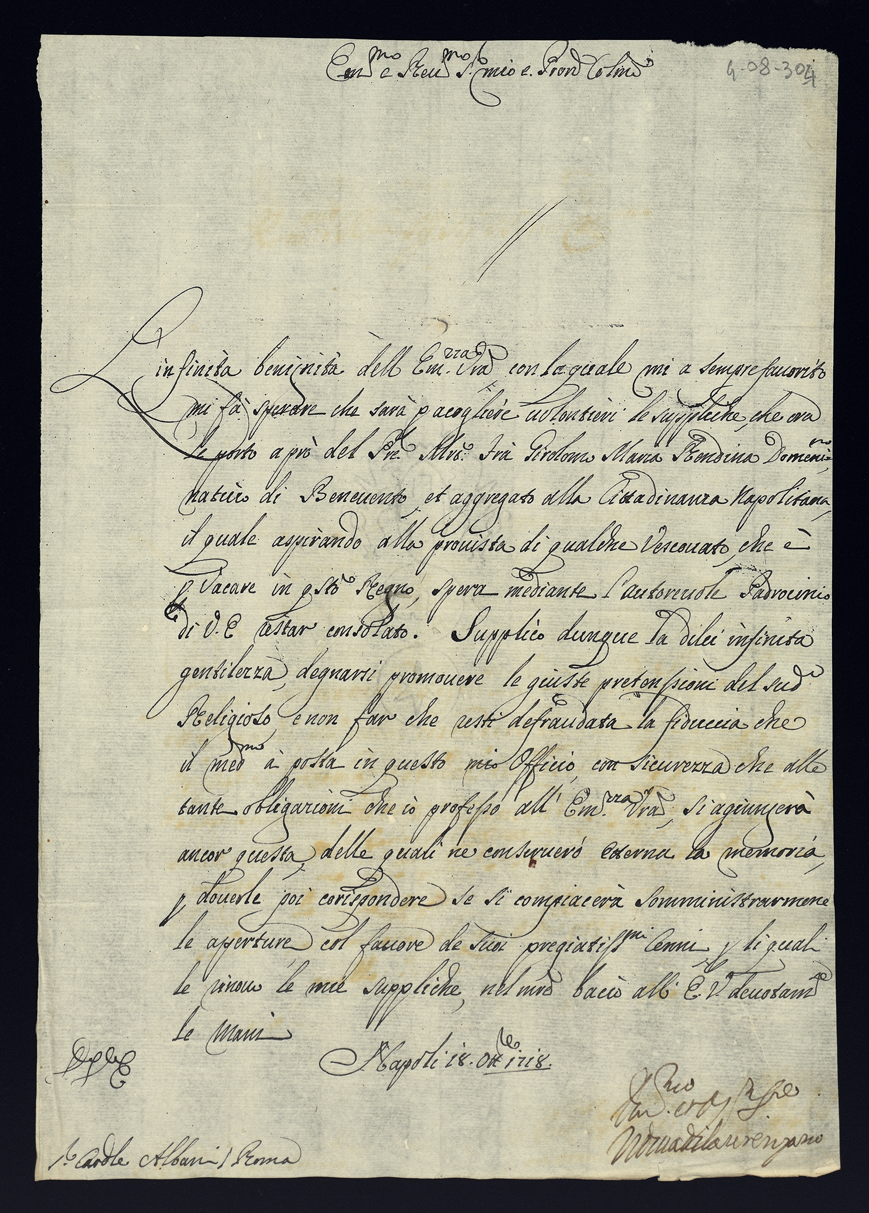 Em.mo e Reu.mo S.r mio e Pron Colmo
4-08-304
L'infinita benignità dell Em.zza Vra con la quale mi a sempre favorito
mi fà sperare che sarà p acogliere uolentieri le suppliche, che ora
le porto a prò del Pre Mro. Frà Girolomo Maria Rendina Domenino,
natiuo di Beneuento, et aggregato alla Cittadinanza Napolitana,
il quale aspirando alla prouista di qualche Vescouato, che è
p Vacare in qsto Regno, spera mediante l'autoreuole Padrocinio
di V. E restar consolato. Supplico dunque la dilei infinita
gentilezza, degnarsi promouere le giuste pretenssioni del sudo
Religioso, e non far che resti defraudata la fiduccia che
il medmo à posta in questo mio Officio, con sicurezza che alle
tante obligazioni che io professo all' Em.zza Vra, si agiungerà
ancor questa, delle quali ne conseruerò eterna la memoria,
p douerle poi corispondere se si compiacerà somministrarmene
le aperture col fauore de suoi pregiatissmi Cenni, p li quali
le rinouo le mie suppliche, nel mro bacio all' E. V. deuotamte
le mani
Napoli 18. Ottre 1718.
S.r Cardle Albani / Roma